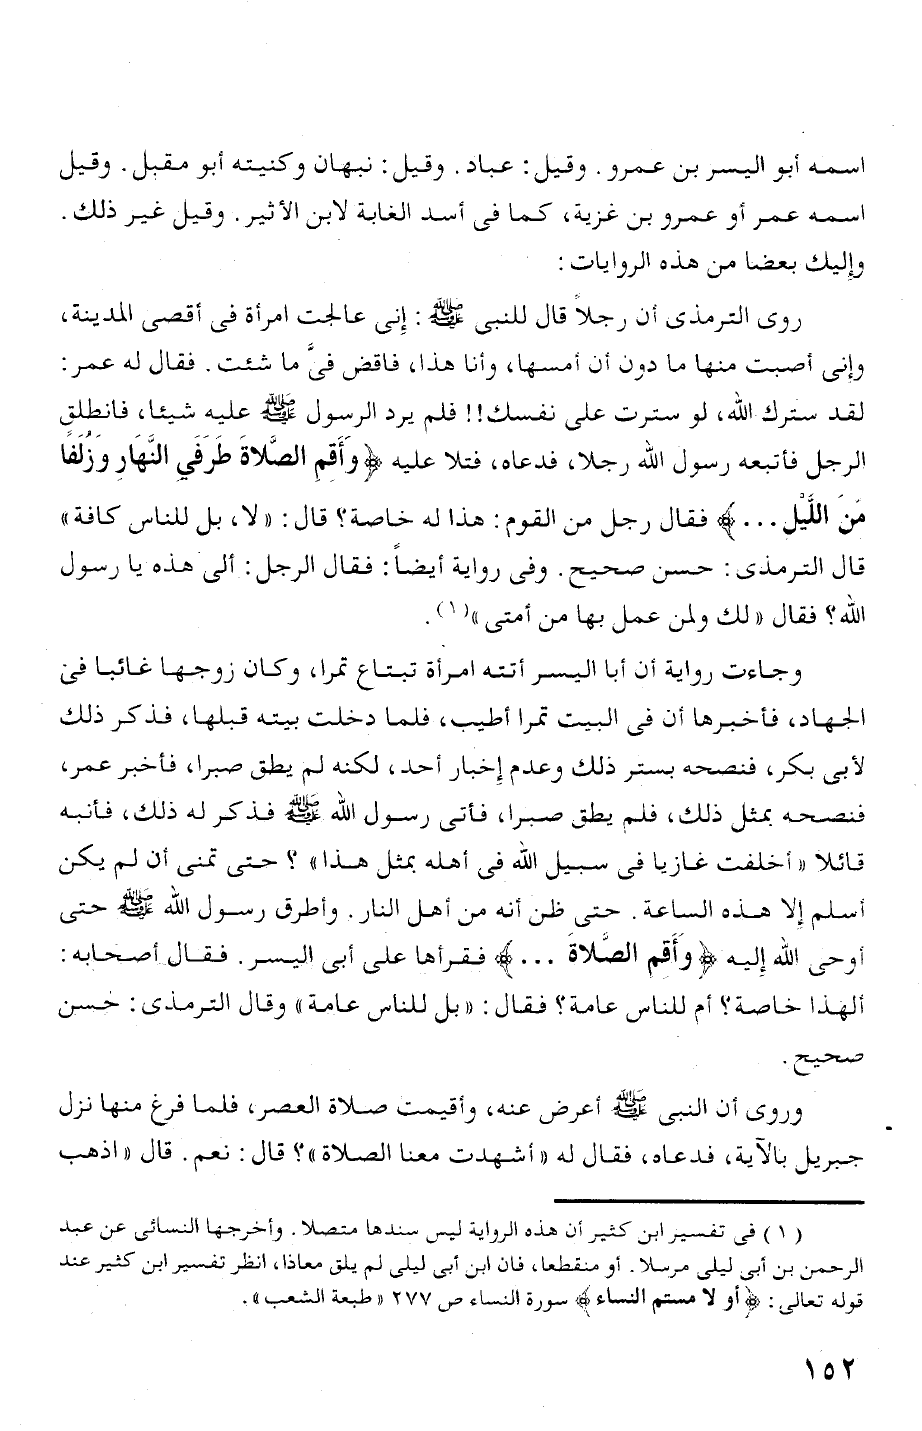 اسمه أبو اليسر بن عمرو . وقيل : عباد . وقيل : نبهان وكنيته أبو مقبل . وقيل
اسمه عمر أو عمرو بن غزية، كما فى أسد الغابة لابن الأثير . وقيل غير ذلك .
وإليك بعضا من هذه الروايات :
روى الترمذى أن رجلاً قال للنبى ﷺ : إنى عالجت امرأة فى أقصى المدينة ،
وإنى أصبت منها ما دون أن أمسها، وأنا هذا، فاقض فىَّ ما شئت . فقال له عمر :
لقد سترك الله، لو سترت على نفسك !! فلم يرد الرسول ﷺ عليه شيئا، فانطلق
الرجل فأتبعه رسول الله رجلا، فدعاه، فتلا عليه ﴿ وَأَقم الصَّلاةَ طَرَفَي النَّهَار وَزُلَفًا
مَنَ اللَّيْل ... ﴾ فقال رجل من القوم : هذا له خاصة؟ قال : « لا، بل للناس كافة »
قال الترمذى : حسن صحيح . وفى رواية أيضاً : فقال الرجل : ألى هذه يا رسول
الله؟ فقال « لك ولمن عمل بها من أمتى »(١) .
وجاءت رواية أن أبا اليسر أتته امرأة تبتاع تمرا، وكان زوجها غائبا فى
الجهاد، فأخبرها أن فى البيت تمرا أطيب، فلما دخلت بيته قبلها، فذكر ذلك
لأبى بكر، فنصحه بستر ذلك وعدم إخبار أحد، لكنه لم يطق صبرا، فأخبر عمر،
فنصحه بمثل ذلك، فلم يطق صبرا، فأتى رسول الله ﷺ فذكر له ذلك، فأنبه
قائلا « أخلفت غازيا فى سبيل الله فى أهله بمثل هذا » ؟ حتى تمنى أن لم يكن
أسلم إلا هذه الساعة . حتى ظن أنه من أهل النار . وأطرق رسول الله ﷺ حتى
أوحى الله إليه ﴿ وَأَقم الصَّلاةَ ... ﴾ فقرأها على أبى اليسر . فقال أصحابه :
ألهذا خاصة؟ أم للناس عامة؟ فقال : « بل للناس عامة » وقال الترمذى : حسن
صحيح .
وروى أن النبى ﷺ أعرض عنه، وأقيمت صلاة العصر، فلما فرغ منها نزل
جبريل بالآية، فدعاه، فقال له « أشهدت معنا الصلاة »؟ قال : نعم . قال « اذهب
( ١ ) فى تفسير ابن كثير أن هذه الرواية ليس سندها متصلا . وأخرجها النسائى عن عبد
الرحمن بن أبى ليلى مرسلا . أو منقطعا، فان ابن أبى ليلى لم يلق معاذا، انظر تفسير ابن كثير عند
قوله تعالى : ﴿ أو لا مستم النساء ﴾ سورة النساء ص ٢٧٧ « طبعة الشعب » .
١٥٢